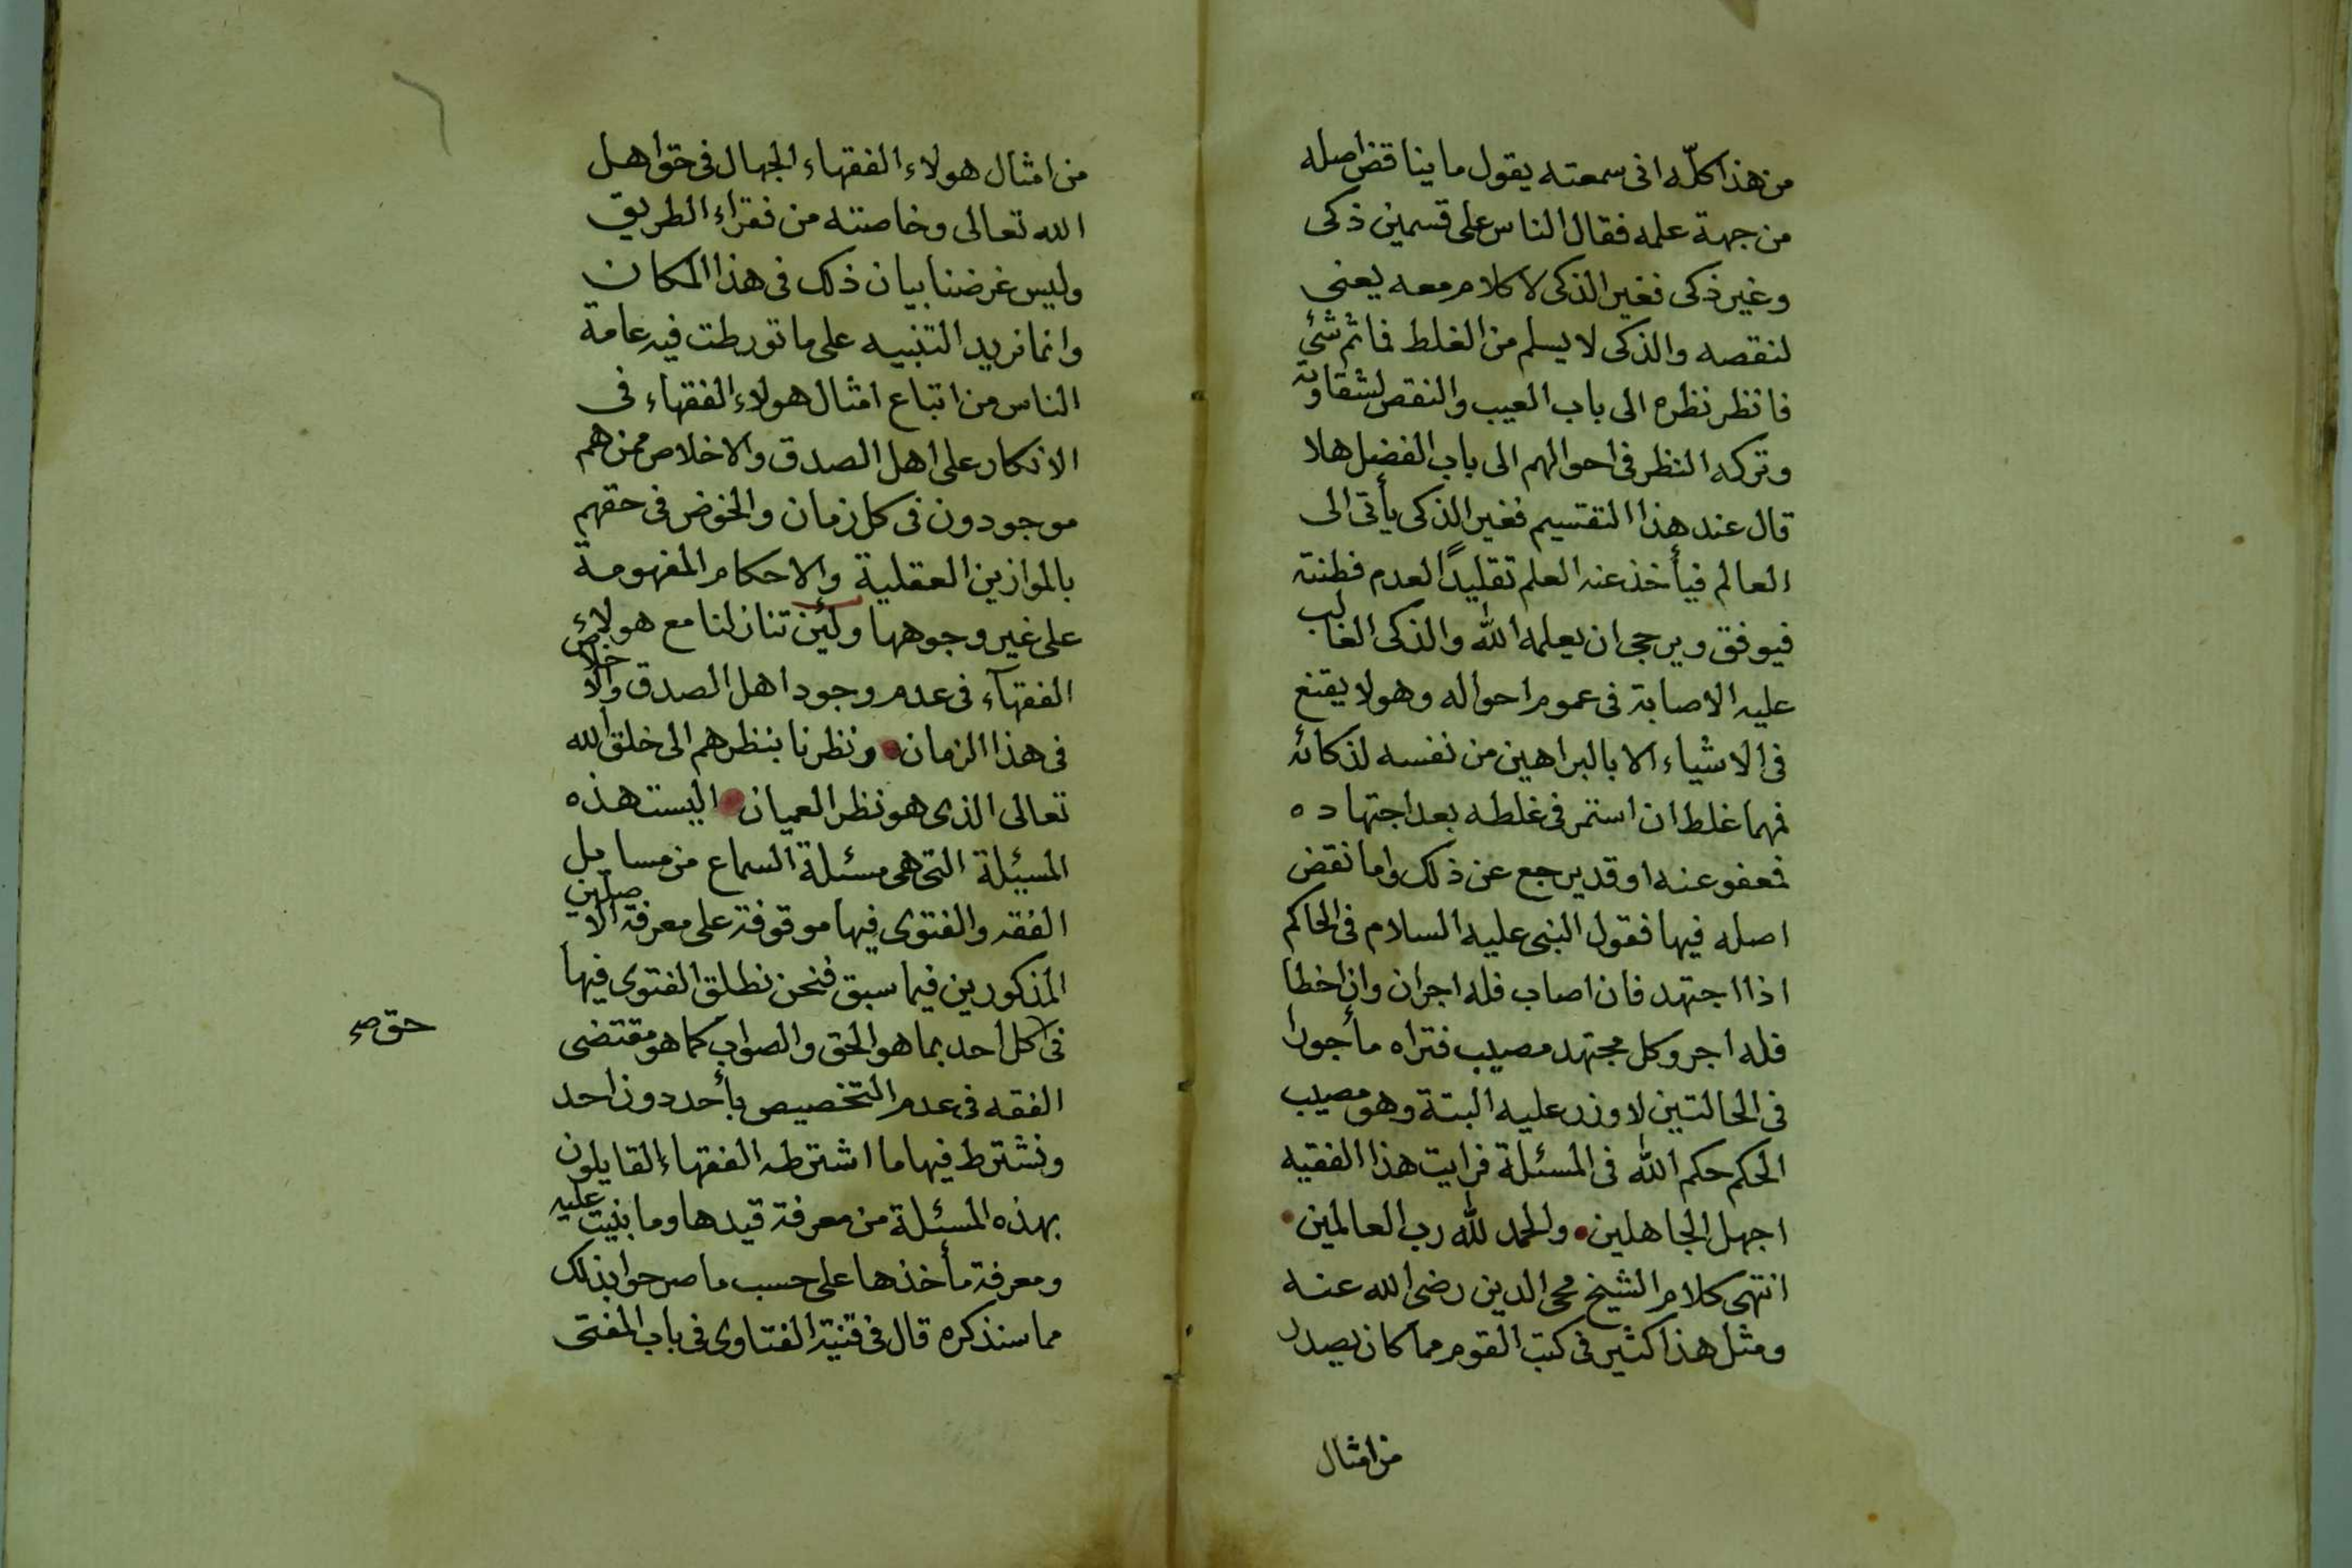 من هذا كلّه انى سمعته يقول ما يناقض اصله
من جهة علمه فقال الناس على قسمين ذكى
وغير ذكى فغير الذكى لا كلام معه يعنى
لنقصه والذكى لا يسلم من الغلط فما ثم شئ
فانظر نظره الى باب العيب والنقص لشقاوته
وتركه النظر فى احوالهم الى باب الفضل هلا
قال عند هذا التقسيم فغير الذكى يأتى الى
العالم فيأخذ عنه العلم تقليدًا لعدم فطنته
فيوفق ويرجى ان يعلمه الله والذكى الغالب
عليه الاصابة فى عموم احواله وهو لا يقنع
فى الاشياء الا بالبراهين من نفسه لذكائه
فمهما غلط ان استمر فى غلطه بعد اجتهاده
فمعفو عنه او قد يرجع عن ذلك واما نقض
اصله فيها فقول النبى عليه السلام فى الحاكم
اذا اجتهد فان اصاب فله اجران وان اخطا
فله اجر وكل مجتهد مصيب فتراه مأجورا
فى الحالتين لا وزر عليه البتة وهو مصيب
الحكم حكم الله فى المسئلة فرايت هذا الفقيه
اجهل الجاهلين والحمد لله رب العالمين
انتهى كلام الشيخ محى الدين رضى الله عنه
ومثل هذا كثير فى كتب القوم مما كان يصدر
من امثال
من امثال هولاء الفقهاء الجهال فى حق اهل
الله تعالى وخاصته من فقراء الطريق
وليس غرضنا بيان ذلك فى هذا المكان
وانما نريد التنبيه على ما تورطت فيه عامة
الناس من اتباع امثال هولاء الفقهاء فى
الانكار على اهل الصدق والاخلاص ممن هم
موجودون فى كل زمان والخوض فى حقهم
بالموازين العقلية والاحكام المفهومة
على غير وجوهها ولئن تنازلنا مع هولاء
الفقهآء فى عدم وجود اهل الصدق والاخلاص
فى هذا الزمان ونظرنا بنظرهم الى خلق الله
تعالى الذى هو نظر العميان اليست هذه
المسيئلة التى هى مسئلة السماع من مسايل
الفقه والفتوى فيها موقوفة على معرفة الاصلين
المذكورين فيما سبق فنحن نطلق الفتوى فيها
فى كل احد بما هو الحق والصواب كما هو مقتضى
حق صح
الفقه فى عدم التخصيص بأحد دون احد
ونشترط فيها ما اشترطه الفقهاء القايلون
بهذه المسئلة من معرفة قيدها وما بنيت عليه
ومعرفة مأخذها على حسب ما صرحوا بذلك
مما سنذكره قال فى قنية الفتاوى فى باب المفتى